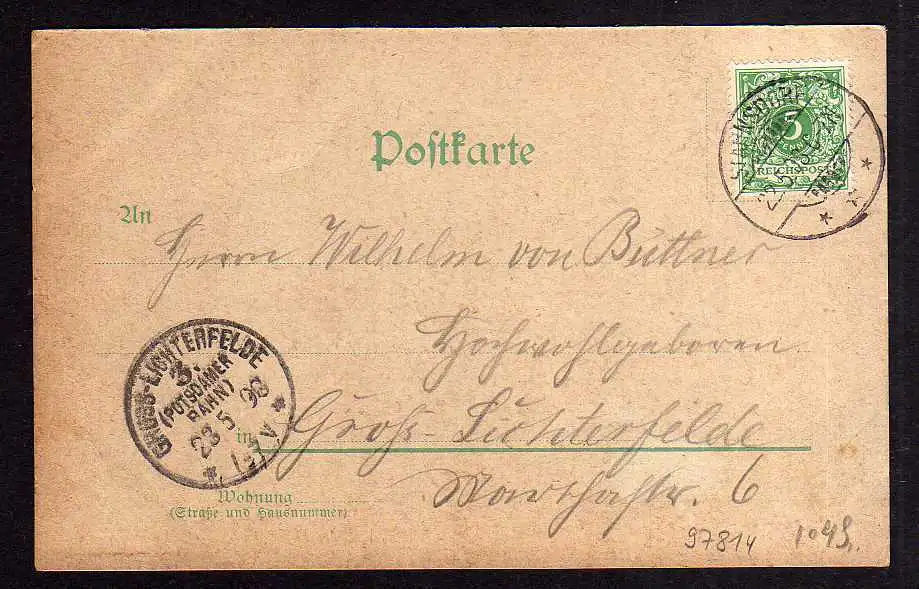 Postkarte
5
REICHSPOST
STAHNSDORF
An
Herrn Wilhelm von Büttner
Hochwohlgeboren
in Groß-Lichterfelde
GROSS-LICHTERFELDE
3.
(POTSDAMER
BAHN)
23 5 98
Wohnung
(Straße und Hausnummer)
Marthastr. 6
97814